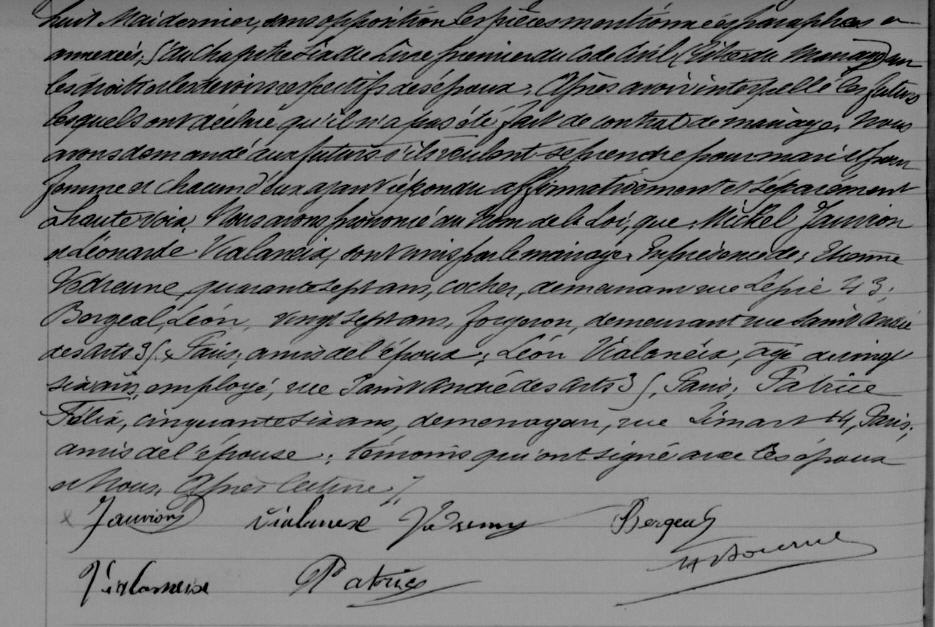 huit Mai dernier, sans opposition. Les pièces mentionnées paraphées et
annexées, & du chapitre six du Livre premier du Code Civil (Titre du Mariage) sur
les droits et devoirs respectifs des époux. Après avoir interpellé les futurs
lesquels ont déclaré qu'il n'a pas été fait de contrat de mariage. Nous
avons demandé aux futurs s'ils veulent se prendre pour mari et pour
femme et chacun d'eux ayant répondu affirmativement et séparément
à haute voix. Nous avons prononcé au Nom de la Loi, que Michel Jauvion
et Léonarde Vialaneix, sont unis par le mariage. En présence de: Etienne
Vedrenne, quarante sept ans, cocher, demeurant rue 43;
Bergeal, Léon, vingt sept ans, forgeron, demeurant rue Saint André
des Arts 35, Paris, amis de l'époux; Léon Vialaneix, âgé de vingt
six ans, employé, rue Saint André des Arts 35, Paris; Patrice
Félix, cinquante six ans, demenageur, rue 44, Paris;
amis de l'épouse; témoins qui ont signé avec les époux
et Nous, Après lecture./.
Jauvion Vialaneix Bergeal
Vialaneix Patrice